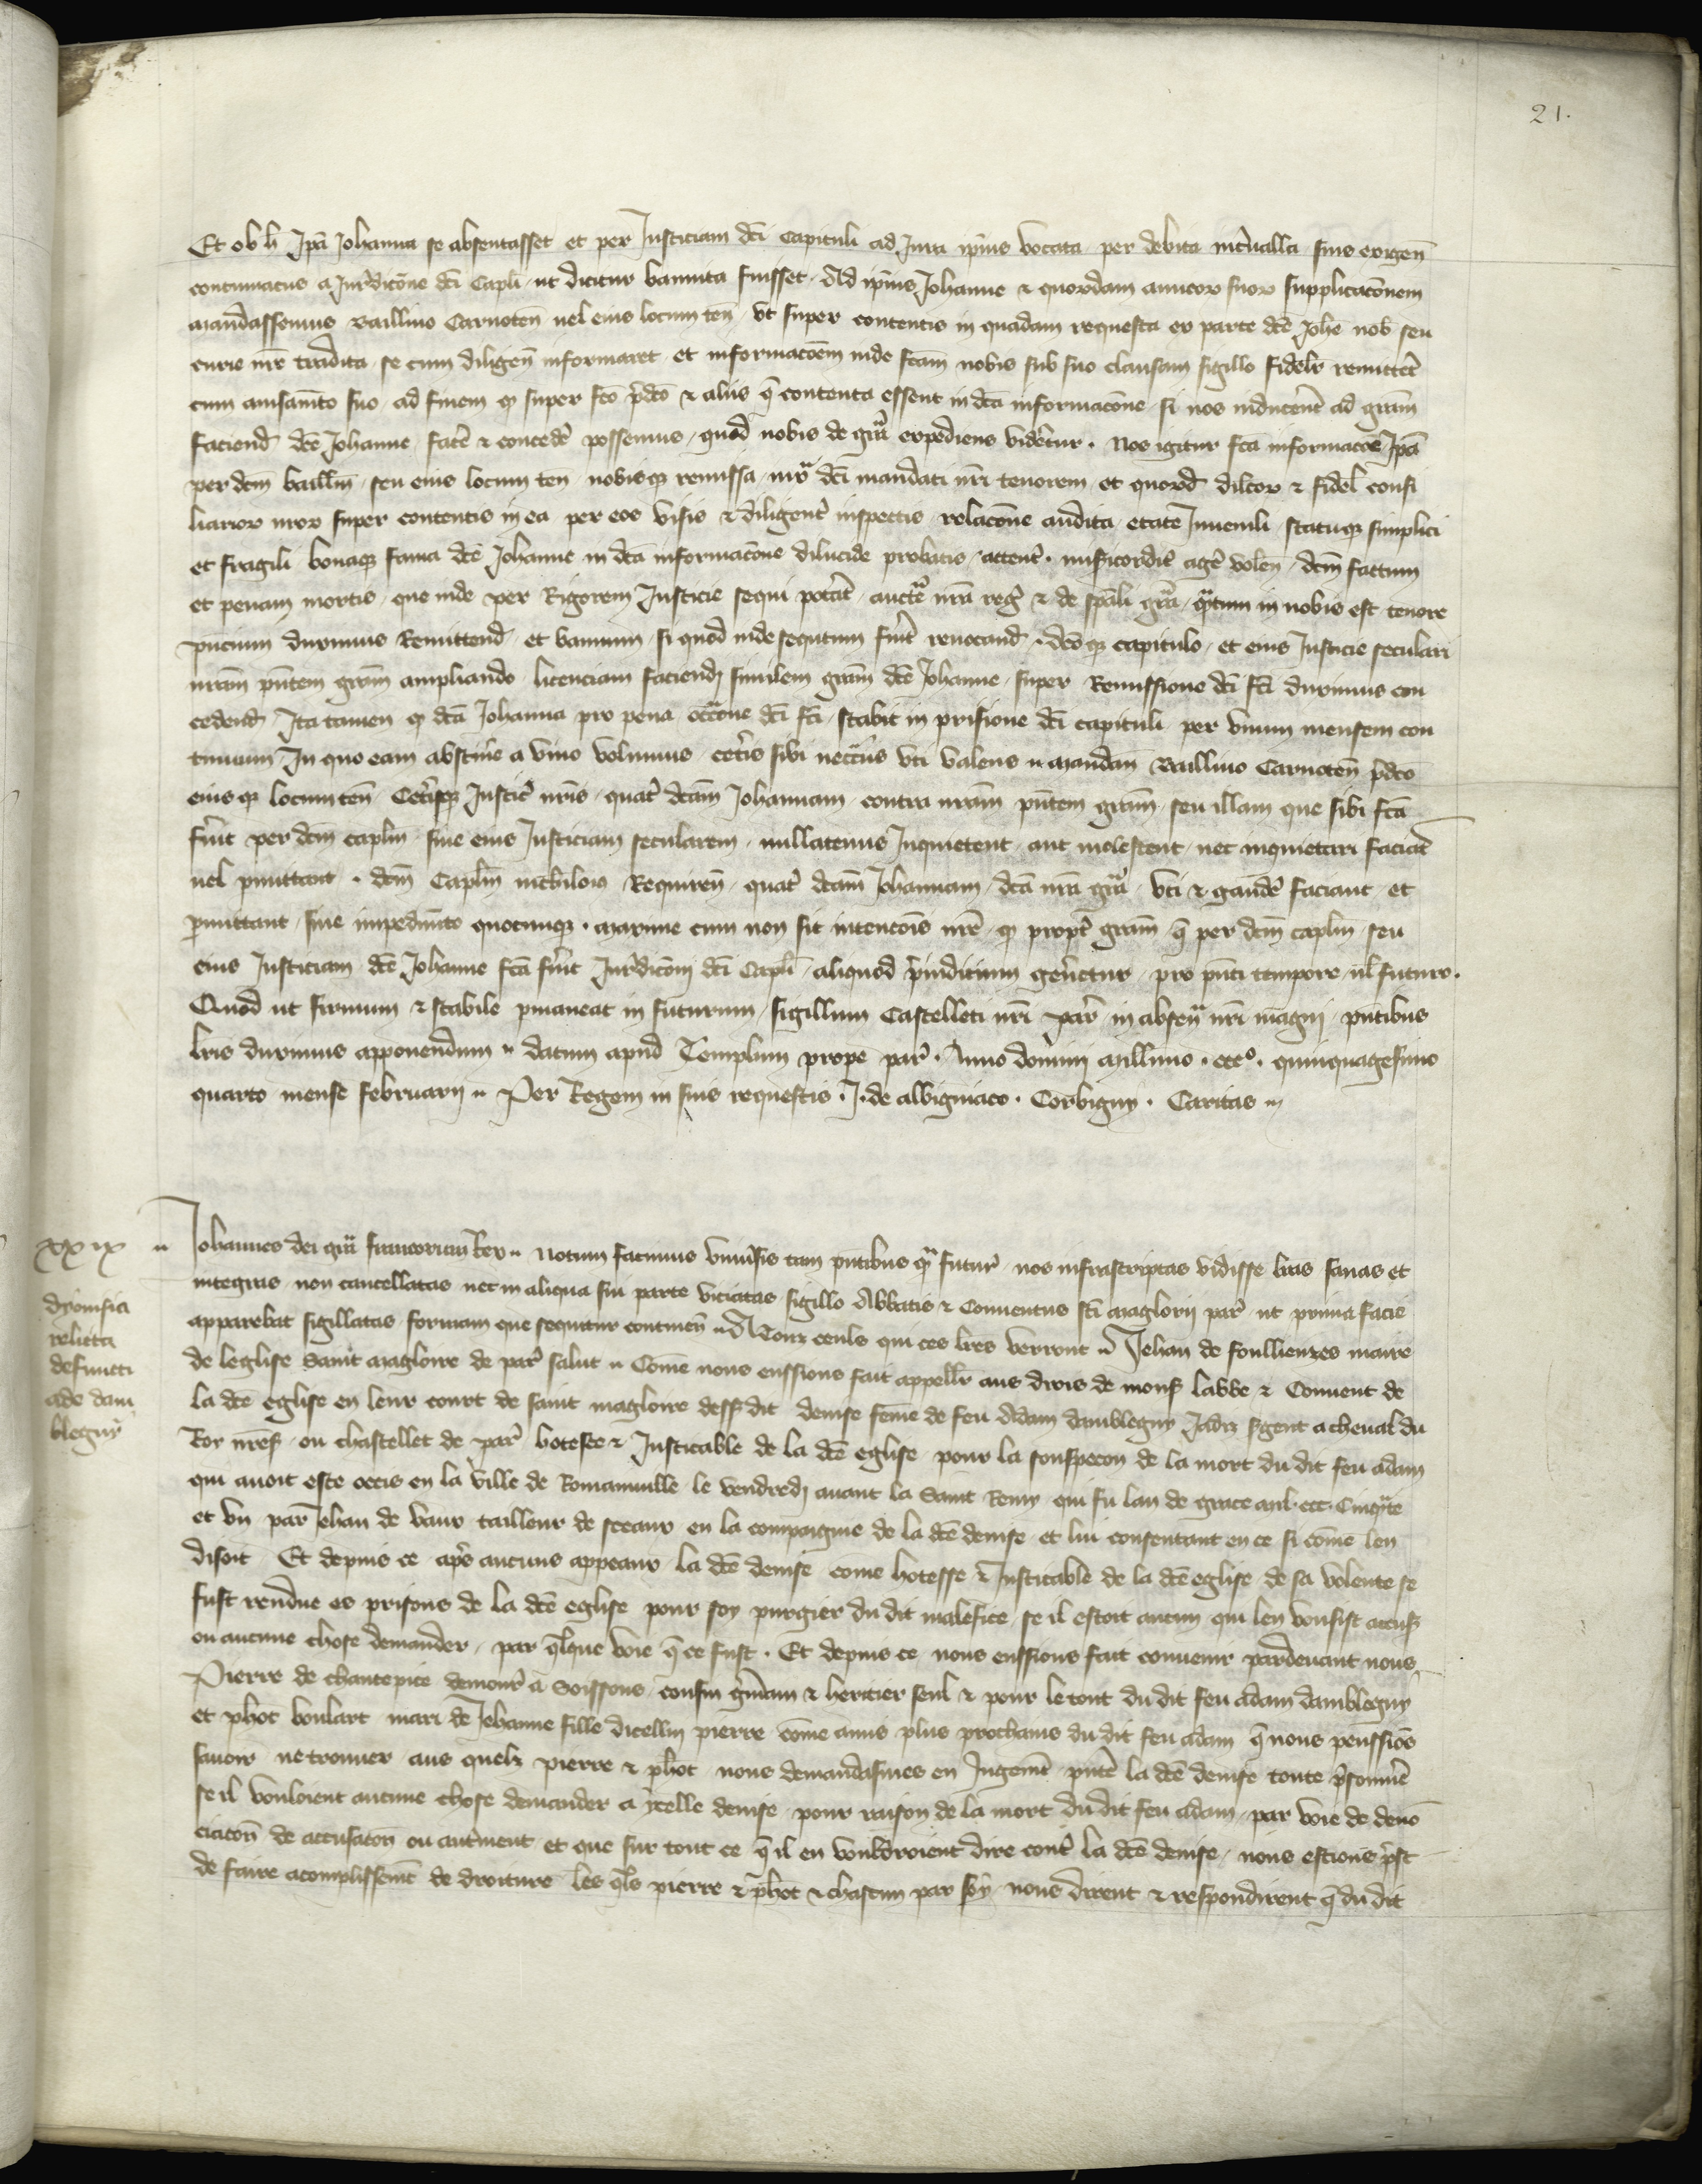 21.
Et ob h Ipā Johanna se absentasset et per Justiciam dc̄i Capituli ad Jura ip̄ius vocata per debita int̄ualla suis exigen̄
contumaciis a Jur̄dicōne dc̄i Capli ut dicitur bannita fuisset . Ad ip̄ius Johanne & quordam amicor suor supplicacōnem
mandassemus Baillivo Carnoten̄ uel eius locum ten̄ vt super contentis in quadam requesta ex parte dc̄e Joh̄e nob̄ seu
curie nr̄e tradita se cum diligen̄ informaret et informacōem inde fc̄am nobis sub suo clausam sigillo fidelr̄ remittet̄
cum auisam̄to suo ad finem q̄ super fc̄o p̄dc̄o & aliis q̄ contenta essent in dc̄a informacōne si nos inducerēt ad grām
faciend̄ dc̄e Johanne facē & concedē possemus quod nobis de grā expediens videretur . Nos igitur fc̄a informacōe Ipā
per dc̄m baillm̄ seu eius locum ten̄ nobisq̄ remissa iux̄ dc̄i mandati nr̄i tenorem et quord̄ dilcor & fidel̄ consi
liarior nror super contentis in ea per eos visis & diligent̄ inspectis relacōne audita etate Juuenili statuq̄ simplici
et fragili bonaq̄ fama dc̄e Johanne in dc̄a informacōne dilucide probatis attent̄ . misericordit̄ agē volen̄ dc̄m factum
et penam mortis que inde per Rigorem Justicie sequi potat̄ auctē nr̄a reḡ & de sp̄ali grā q̄tum in nobis est tenore
p̄ncium duximus Remittend̄ et bannum si quod inde sequtum fuit̄ reuocand̄ . dc̄oq̄ capitulo et eius Justicie seculari
nr̄am pn̄tem grām ampliando licenciam faciendj similem grām dc̄e Johanne super Remissione dc̄i fc̄i duximus con
cedend̄ Ita tamen q̄ dc̄a Johanna pro pena occ̄one dc̄i fc̄i stabit in prisione dc̄i capituli per vnum mensem con
tinuum In quo eam abstinē a vino volumus cetis sibi neccīis vti valens .. mandan̄ Baillivo Carnoten̄ p̄dc̄o
eius q̄ locum ten̄ Cetīsq̄ Justic̄ nr̄is quat̄ dc̄am Johannam contra nr̄am pn̄tem grām seu illam que sibi fc̄a
fuit̄ per dc̄m caplm̄ siue eius Justiciam secularem nullatenus Inquietent aut molestent nec inquietari faciat̄
uel p̄mittant . dc̄m Caplm̄ nichilois Requiren̄ quat̄ dc̄am Johannam dc̄a nr̄a grā vti & gaudē faciant et
p̄mittant sine impedimto quocunq̄ . maxime cum non sit intencōis nr̄e q̄ propt̄ grām q̄ per dc̄m caplm̄ seu
eius Justiciam dc̄e Johanne fc̄a fuit̄ Jur̄dicōni dc̄i Capli aliquod p̄iudicium gen̄etur pro pn̄ti tempore ul̄ futuro .
Quod ut firmum & stabile p̄maneat in futurum sigillum Castelleti nr̄i par̄ in absen̄ nr̄i magni pn̄tibus
lr̄is duximus apponendum .. datum apud Templum prope par̄ . Anno domini millimo . ccc° . quinquagesimo
quarto mense februarij .. Per Regem in suis requestis . J . de albigniaco . Corbigny . Caritas ..
xxix
Johannes dei grā francorum Rex .. Notum facimus vniuīsis tam pn̄tibus q̄ futur̄ nos infrascriptas vidisse lr̄as sanas et
integras non cancellatas nec in aliqua sui parte viciatas sigillo Abbatis & Conuentus sc̄i maglorij par̄ ut prima facie
apparebat sigillatas formam que sequitur continen̄ .. A Touz ceuls qui ces lr̄es verront .. Jehan de foullieuzes maire
de leglise Saint magloire de par̄ salut .. Cōme nous eussions fait appellr̄ aus drois de mons̄ labbe & Conuent de
la dc̄e eglise en leur court de saint magloire dessusdit denise fēme de feu Adam damblegny Jadiz s̄gent a cheual du
Roy nr̄e s̄ ou chastellet de par̄ hotesce & Justicable de la dc̄e eglise pour la souspecōn de la mort du dit feu adam
qui auoit este occis en la ville de Romainuille le vendredj auant la Saint Remy qui fu lan de grace mil . ccc . Cinq̄te
et vn par Jehan de vaux tailleur de sceaux en la compaignie de la dc̄e denise et lui consentant en ce si cōme len
disoit Et depuis ce apr̄s aucuns appeaux la dc̄e denise cōme hotesse & Justicable de la dc̄e eglise de sa volente se
fust rendue es prisons de la dc̄e eglise pour soy purgier du dit malefice se il estoit aucun qui len vousist accus̄
ou aucune chose demander par q̄lque voie q̄ ce fust . Et depuis ce nous eussions fait conuenir pardeuant nous
Pierre de chantepice demour̄ a Soissons cousin gm̄ain & heritier seul & pour le tout du dit feu adam damblegny
et phot boulart mari de Jehanne fille dicellui pierre cōme amis plus prochains du dit feu adam q̄ nous peussiōs
sauoir ne trouuer aus quelz pierre & phot nous demandasmes en Jugem̄t pn̄te la dc̄e denise toute p̄sonniē
se il vouloient aucune chose demander a ycelle denise pour raison de la mort du dit feu adam par voie de denō
ciacōn de accusacōn ou autrement et que sur tout ce q̄ il en voudroient dire cont̄ la dc̄e denise nous estions p̄st
de faire acomplissem̄t de droiture les q̄ls pierre & phot & chascun par soy nous dirent & respondirent q̄ du dit
dyonisia
relicta
defuncti
ade dam
blegny